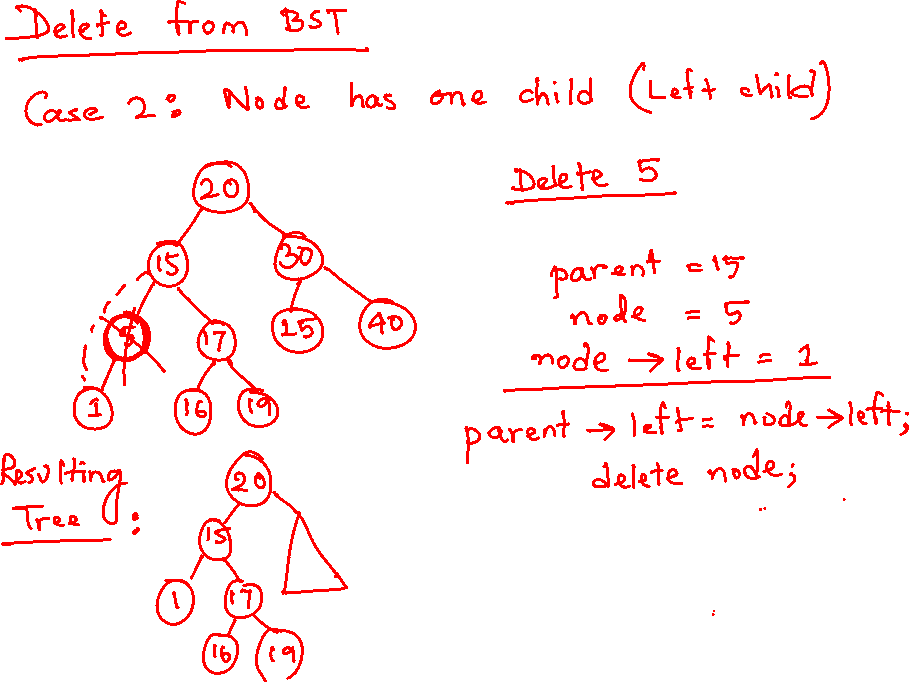 Delete from BST
Case 2: Node has one child (Left child)
Delete 5
20
15
30
5
17
25
40
1
16
19
parent = 15
node = 5
node → left = 1
parent → left = node → left;
delete node;
Resulting
Tree :
20
15
1
17
16
19